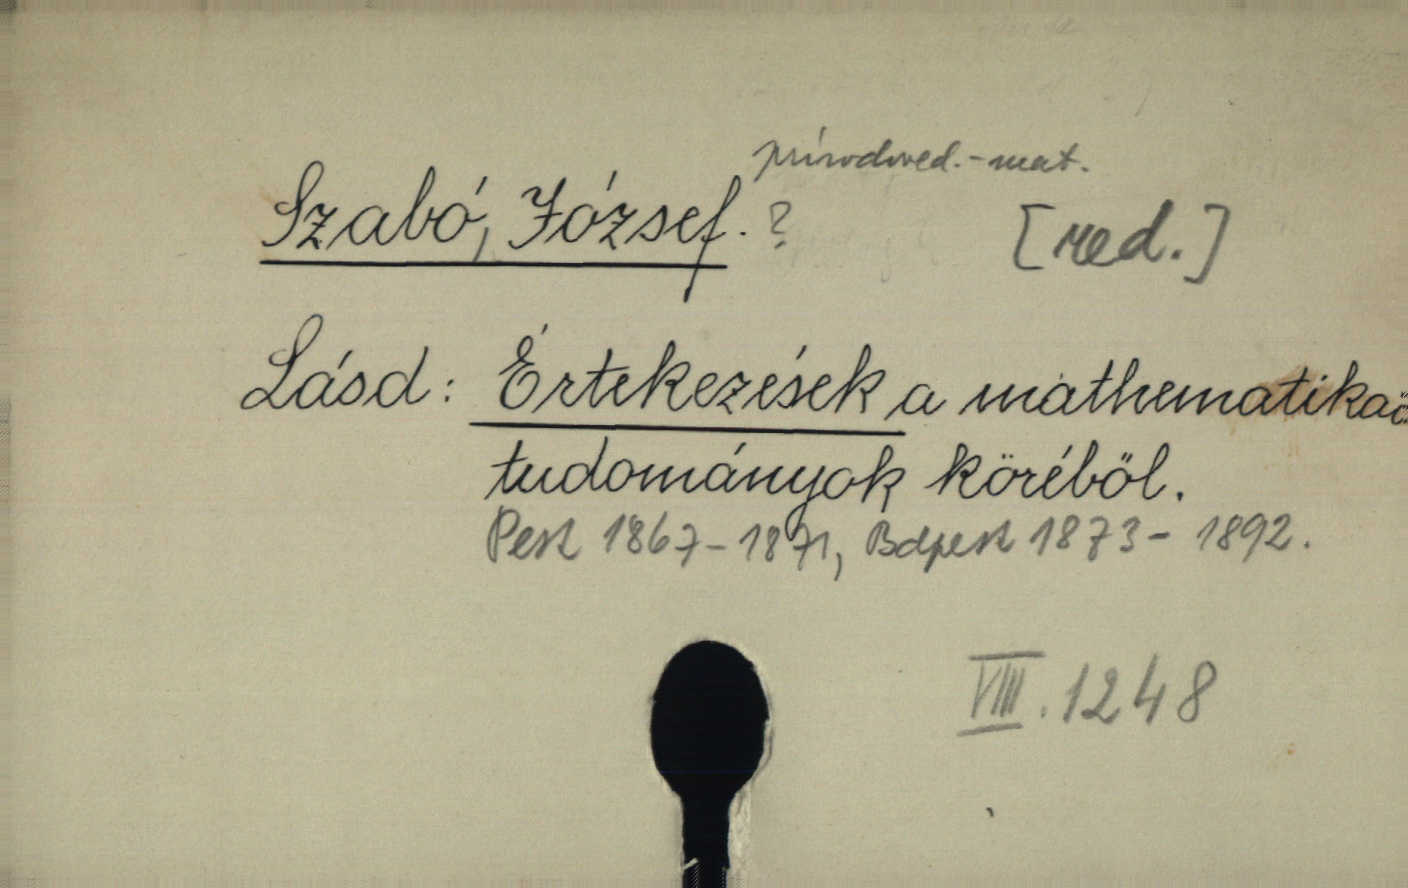 prírodoved.-mat.
Szabó, József. ? [red.]
Lásd: Értekezések a mathematikai
tudományok köréből.
Pest 1867-1871, Bdpest 1873-1892.
VIII. 1248